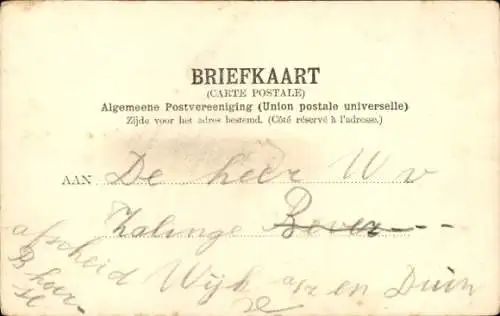 BRIEFKAART
(CARTE POSTALE)
Algemeene Postvereeniging (Union postale universelle)
Zijde voor het adres bestemd. (Côté réservé à l'adresse.)
AAN De heer W v
Zalinge Bever
afscheid Wijk a/z en Duin